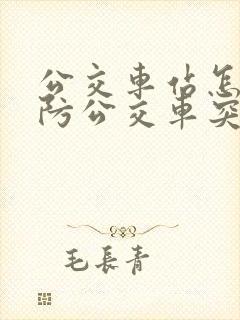 公交車站怎
防公交車突
毛長青